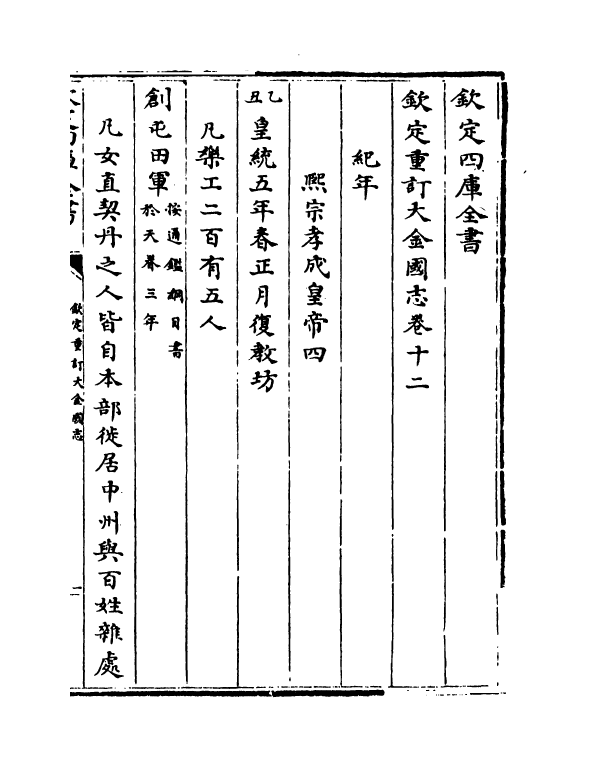 欽定四庫全書
欽定重訂大金國志卷十二
紀年
熙宗孝成皇帝四
乙丑皇統五年春正月復教坊
凡樂工二百有五人
創屯田軍按通鑑綱目書於天眷三年
凡女直契丹之人皆自本部徙居中州與百姓雜處
欽定重訂大金國志